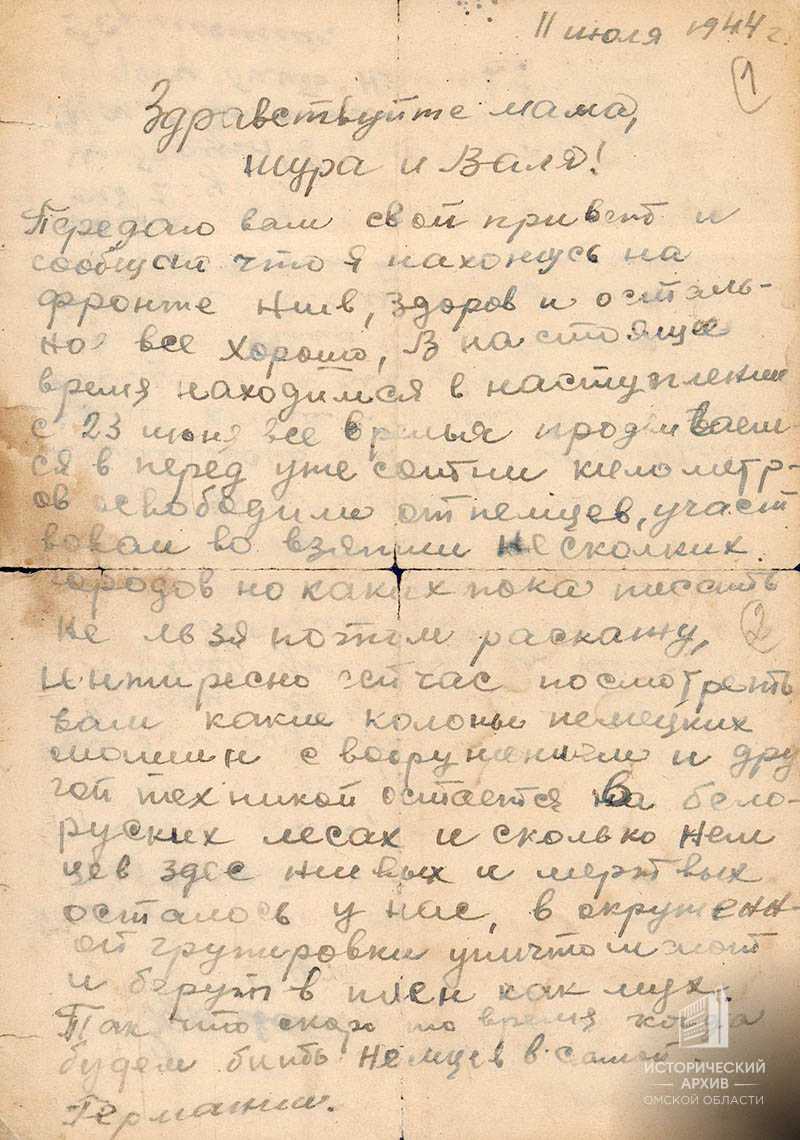 11 июля 1944 г.
1
Здравствуйте мама,
Шура и Валя!
Передаю вам свой привет и
сообщаю что я нахожусь на
фронте жив, здоров и осталь-
ное все хорошо, В настояще
время находимся в наступлении
с 23 июня все время продвигаем-
ся в перед уже сотни километр-
ов освободили от немцев, участ
вовал во взятии несколких
городов но каких пока писать
не льзя потом раскажу, 2
Интиресно сейчас посмотреть
вам какие колоны немецких
машин с вооружением и дру
гой техникой остается в бело-
руских лесах и сколько нем
цев здес живых и мертвых
осталось у нас, в окруженн-
ой групировки уничтожают
и берут в плен как мух.
Так что скоро то время когда
будем бить немцев в самой
Германии.
ИСТОРИЧЕСКИЙ
АРХИВ
ОМСКОЙ ОБЛАСТИ